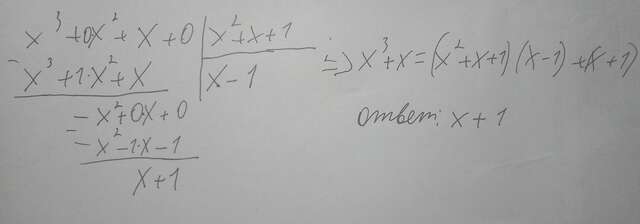 x³+0x²+x+0 | x²+x+1
- x³+1·x²+x | x-1
-x²+0x+0
- -x²-1·x-1
x+1
=> x³+x=(x²+x+1)(x-1)+(x+1)
Ответ: x+1